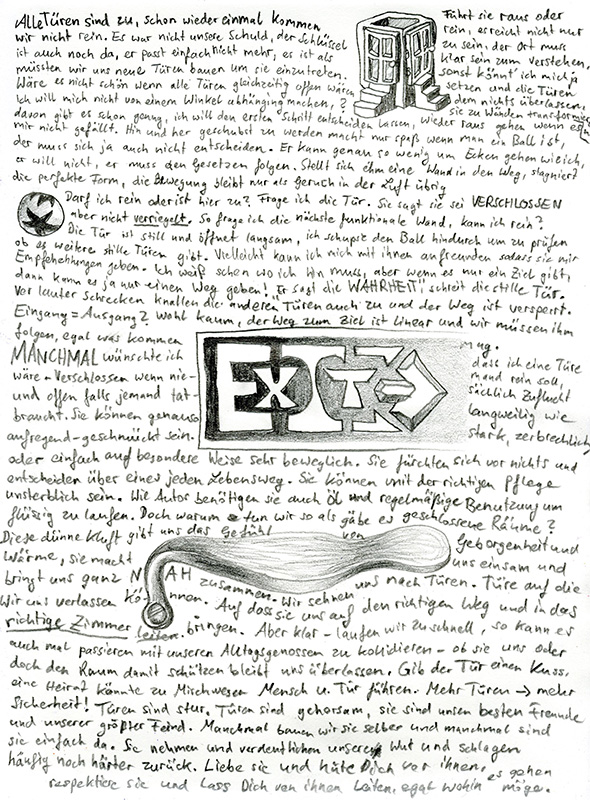 Alle Türen sind zu, schon wieder einmal kommen
wir nicht rein. Es war nicht unsere Schuld, der Schlüssel
ist auch noch da, er passt einfach nicht mehr, es ist als
müssten wir uns neue Türen bauen um sie einzutreten.
Wäre es nicht schön wenn alle Türen gleichzeitig offen wären?
Ich will mich nicht von einem Winkel abhängig machen,
Führt sie raus oder
rein, es reicht nicht nur
zu sein, der Ort muss
klar sein zum verstehen,
sonst könnt ich mich ja
setzen und die Türen
dem nichts überlassen,
sie zu Wänden transformieren
davon gibt es schon genug, ich will den ersten Schritt entscheiden lassen, wieder raus gehen wenn es
mir nicht gefällt. Hin und her geschubst zu werden macht nur spaß wenn man ein Ball ist,
der muss sich ja auch nicht entscheiden. Er kann genau so wenig um Ecken gehen wie ich,
er will nicht, er muss den Gesetzen folgen. Stellt sich ihm eine Wand in den Weg, stagniert
die perfekte Form, die Bewegung bleibt nur als Geruch in der Luft übrig
Darf ich rein oder ist hier zu? Frage ich die Tür. Sie sagt sie sei VERSCHLOSSEN
aber nicht verriegelt. So frage ich die nächste funktionale Wand, kann ich rein?
Die Tür ist still und öffnet langsam, ich schups den Ball hindurch um zu prüfen
ob es weitere stille Türen gibt. Vielleicht kann ich mich mit ihnen anfreunden sodass sie mir
Empfehlungen geben. Ich weiß schon wo ich hin muss, aber wenn es nur ein Ziel gibt,
dann kann es ja nur einen Weg geben! Er sagt die "WAHRHEIT", schreit die stille Tür.
Vor lauter Schrecken knallen die anderen Türen auch zu und der Weg ist versperrt.
Eingang = Ausgang? Wohl kaum, der Weg zum Ziel ist linear und wir müssen ihm
folgen, egal was kommen mag.
MANCHMAL wünschte ich dass ich eine Türe
wäre - Verschlossen wenn niemand rein soll,
und offen falls jemand tatsächlich Zuflucht
braucht. Sie können genauso langweilig wie
aufregend - geschmückt sein. stark, zerbrechlich
EXIT
oder einfach auf besondere Weise sehr beweglich. Sie fürchten sich vor nichts und
entscheiden über eines jeden Lebensweg. Sie können mit der richtigen Pflege
unsterblich sein. Wie Autos benötigen sie auch Öl und regelmäßige Benutzung um
flüssig zu laufen. Doch warum tun wir so als gäbe es geschlossene Räume?
Diese dünne Kluft gibt uns das Gefühl von Geborgenheit und
Wärme, sie macht uns einsam und
bringt uns ganz NAH zusammen. Wir sehnen uns nach Türen. Türe auf die
wir uns verlassen können. Auf dass sie uns auf den richtigen Weg und in das
richtige Zimmer leiten. bringen. Aber klar - laufen wir zu schnell, so kann es
auch mal passieren mit unseren Alltagsgenossen zu kollidieren - ob sie uns oder
doch den Raum damit schützen bleibt uns überlassen. Gib der Tür einen Kuss.
eine Heirat könnte zu Mischwesen Mensch u. Tür führen. Mehr Türen → mehr
Sicherheit! Türen sind stur, Türen sind gehorsam, sie sind unsen besten Freunde
und unserer größter Feind. Manchmal bauen wir sie selber und manchmal sind
sie einfach da. Sie nehmen und verdeutlichen unsere Wut und schlagen
häufig noch härter zurück. Liebe sie und hüte Dich vor ihnen,
respektiere sie und lass Dich von ihnen leiten, egal wohin es gehen möge.